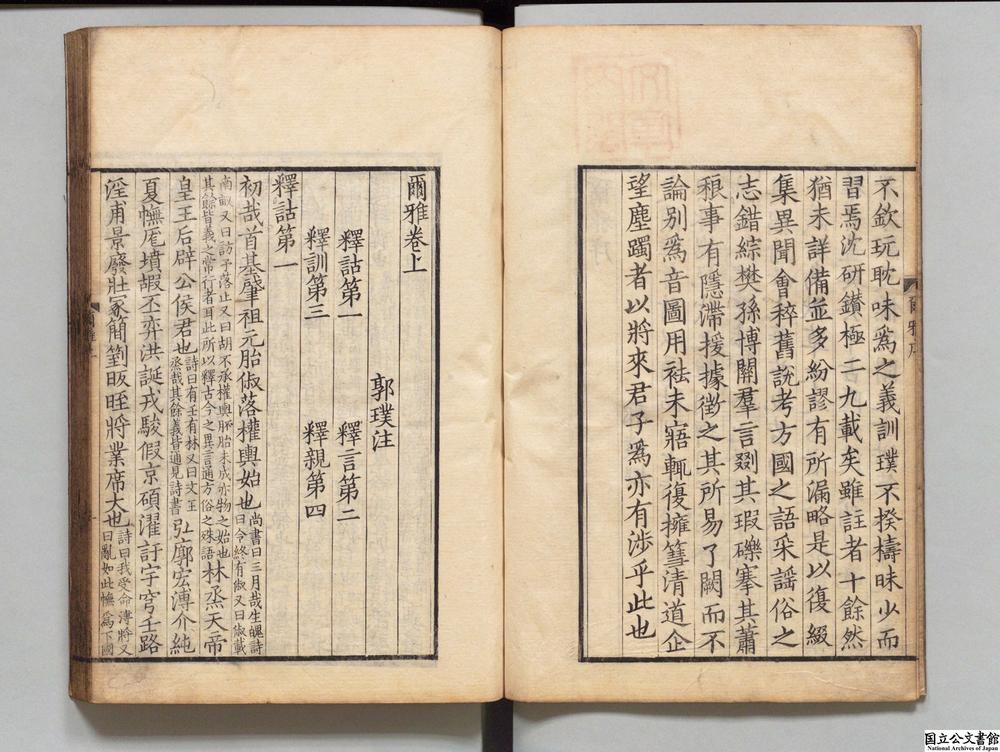 爾雅序
不欽玩耽味爲之義訓璞不揆檮昧少而
習焉沈研鑽極二九載矣雖註者十餘然
猶未詳備並多紛謬有所漏略是以復綴
集異聞會稡舊說考方國之語采謡俗之
志錯綜樊孫博關羣言剟其瑕礫搴其蕭
稂事有隱滯援據徵之其所易了闕而不
論別爲音圖用袪未寤輒復擁篲清道企
望塵躅者以將來君子爲亦有涉乎此也
爾雅卷上
郭璞注
釋詁第一 釋言第二
釋訓第三 釋親第四
釋詁第一
初哉首基肇祖元胎俶落權輿始也尚書曰三月哉生魄詩曰令終有俶又曰俶載
南畝又曰訪予落止又曰胡不承權輿胚胎未成亦物之始也其餘皆義之常行者耳此所以釋古今之異言通方俗之殊語林烝天帝
皇王后辟公侯君也詩曰有壬有林又曰文王烝哉其餘義皆通見詩書弘廓宏溥介純
夏幠厖墳嘏丕弈洪誕戎駿假京碩濯訏宇穹壬路
淫甫景廢壯冢簡箌昄晊將業席大也詩曰我受命溥將又曰亂如此幠爲下國
国立公文書館
National Archives of Japan